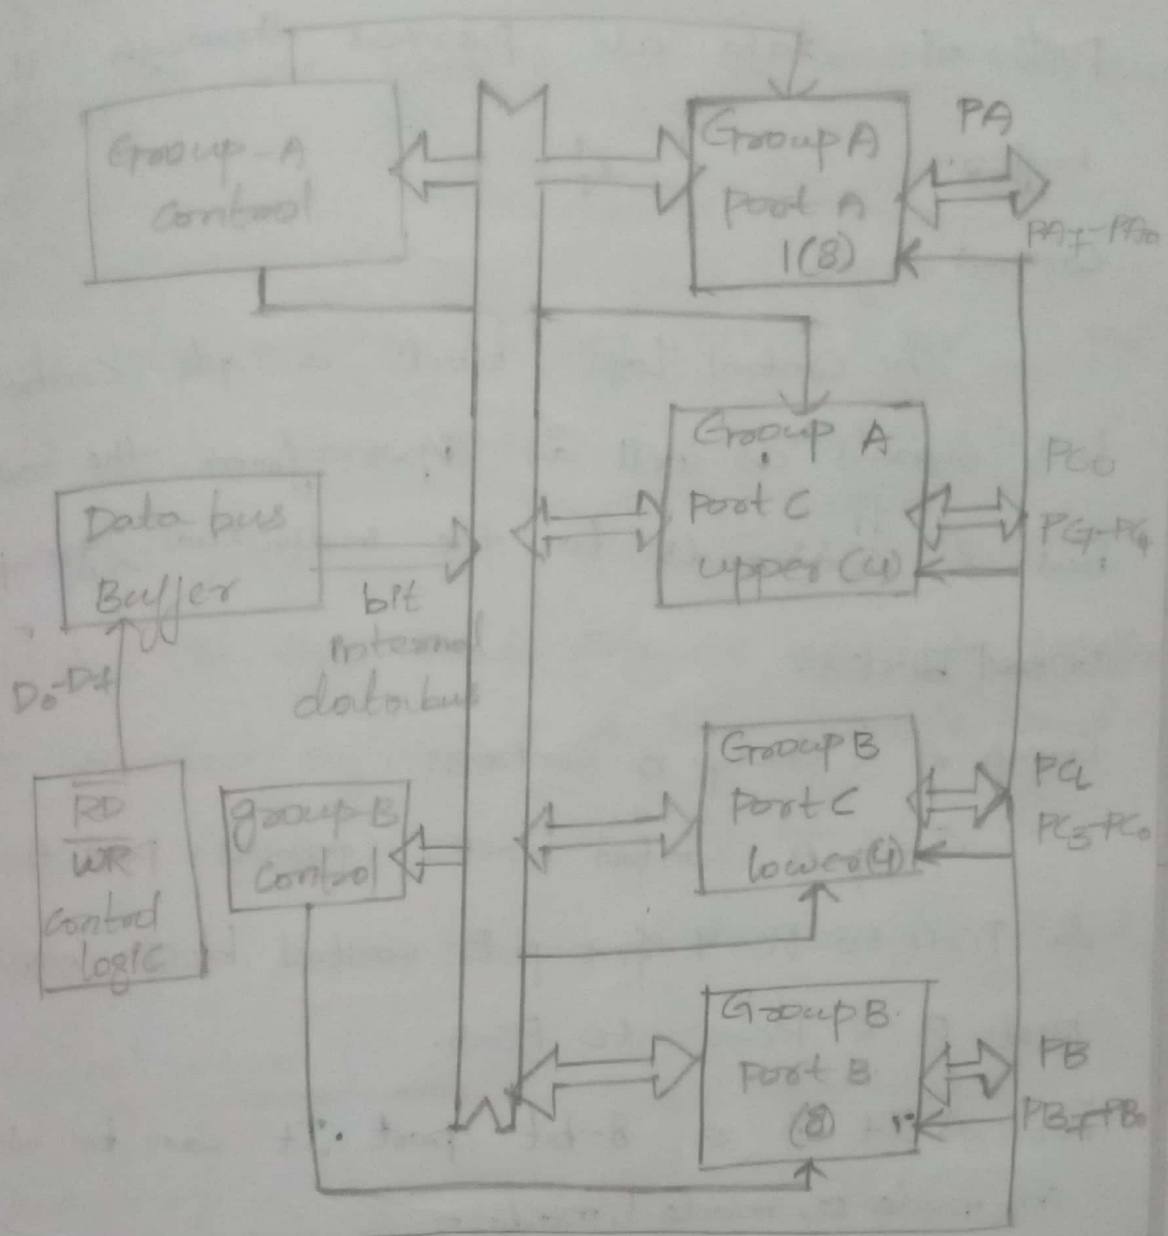 Group-A
control
Group A
Port A
1(8)
PA
PA7-PA0
Group A
Port C
upper (4)
PC0
PC7-PC4
Data bus
Buffer
bit
internal
data bus
D0-D7
RD
WR
Control
logic
group-B
control
Group B
Port C
lower(4)
PCL
PC3-PC0
Group B
Port B
(8)
PB
PB7-PB0